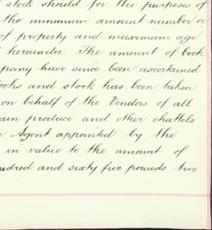 stock should for the purposes of
the minimum amount number or
of property and maximum age
hereunder. The amount of book
pany have since been ascertained
ooks and stock has been taken
on behalf of the Vendors of all
ain produce and other chattels
Agent appointed by the
in value to the amount of
undred and sixty five pounds two